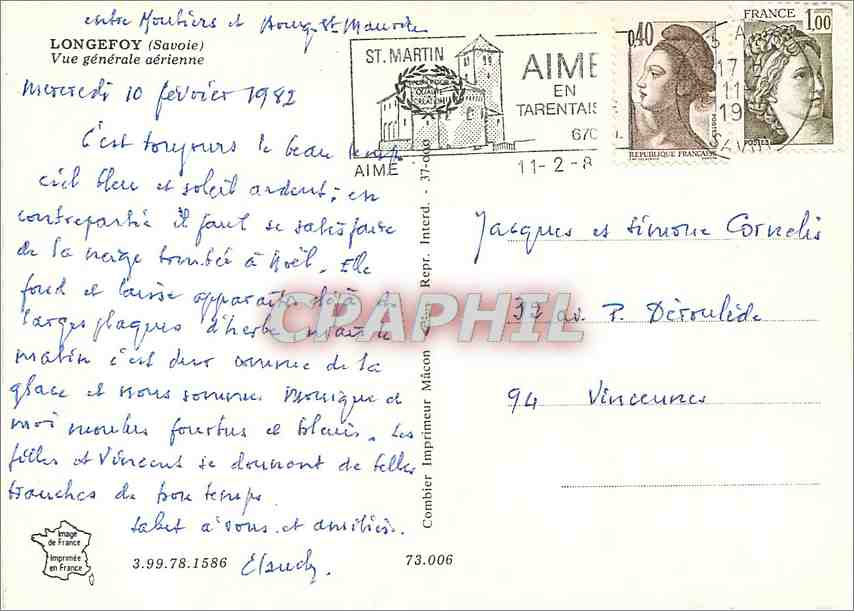 entre Moutiers et Bourg St Maurice
LONGEFOY (Savoie)
Vue générale aérienne
Mercredi 10 février 1982
C'est toujours le beau temps
ciel bleu et soleil ardent; en
contrepartie il faut se satisfaire
de la neige tombée à Noël. Elle
fond et laisse apparaître déjà de
larges plaques d'herbe,
matin c'est dur comme de la
glace et nous sommes Monique et
moi moulus fourbus et bleuis. Les
filles et Vincent se donnent de belles
tranches de bon temps.
Salut à vous et amitiés.
Claude
Image
de France
Imprimée
en France
3.99.78.1586
73.006
Combier Imprimeur Mâcon Repr. Interd. - 37-000
ST. MARTIN
AIME
AIME
EN
TARENTAIS
11-2-8
0,40
REPUBLIQUE FRANÇAISE
POSTES
FRANCE
1,00
POSTES
17 H
11-
19
SAVOIE
Jacques et Simone Cornelis
39 av. P. Déroulède
94 Vincennes
CPAPHIL